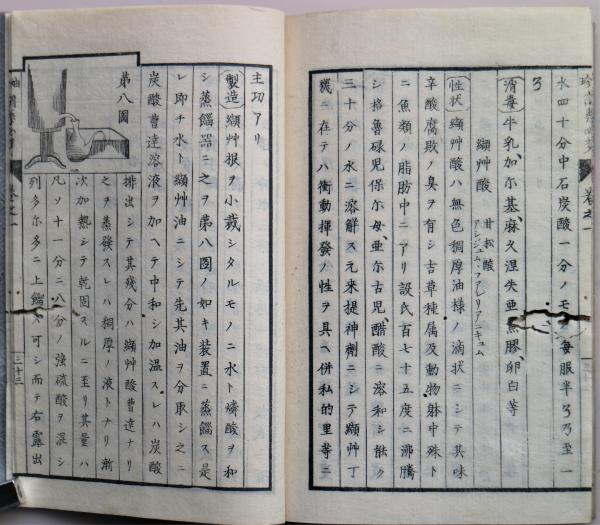 水四十分中石炭酸一分ノモノ毎服半ろ乃至一
ろ
消毒 牛乳、加尓基、麻久涅失亜、魚膠、卵白等
纈艸酸 甘松酸 アシジュム・ファレリアニキュム
性状 纈艸酸ハ無色稠厚油様ノ滴状ニシテ其味
辛酸腐敗ノ臭ヲ有シ吉草種属及動物躰中殊ト
ニ魚類ノ脂肪中ニアリ設氏百七十五度ニ沸騰
シ格魯碌児保尓毋、亜尓古児、醋酸ニ溶和シ能ク
三十分ノ水ニ溶解ス元来提神劑ニシテ纈艸丁
幾ニ在テハ衝動揮発ノ性ヲ具ヘ併私的里等ニ
主功アリ
製造 纈艸根ヲ小裁シタルモノニ水ト燐酸ヲ和
シ蒸餾器ニ之ヲ第八圖ノ如キ装置ニ蒸餾ス是
レ即チ水ト纈艸油ニシテ先其油ヲ分取シ之ニ
炭酸曹達溶液ヲ加ヘテ中和シ加温スレハ炭酸
第八圖
排出シテ其残分ハ纈艸酸曹達ナリ
之ヲ蒸發スレハ稠厚ノ液トナリ漸
次加熱シテ乾固スルニ至リ其量ハ
凡ソ十一分ニ八分ノ強硫酸ヲ混シ
列多尓多ニ上餾ス可シ而テ右露出
卷之一
三十三